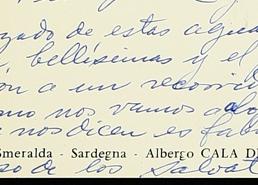 zado de estas aguas
bellísimas y el
ón a un recorrido
mo nos vamos a
nos dicen es fab
Smeralda - Sardegna - Albergo CALA DI
so de los Salvat